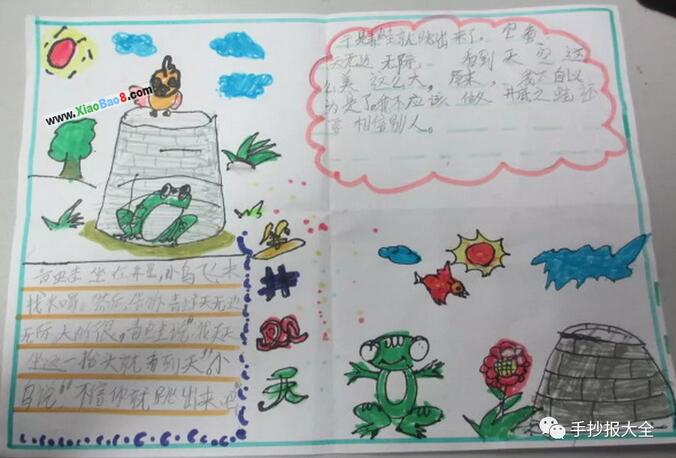 www.XiaoBao8.com
青蛙坐在井里,小鸟飞来
找水喝。
天无边
无际,大的很,青蛙说"我天天
坐这一抬头就看到天"。小
鸟说"不信你就跳出来吧"
坐
井
观
天
于是青蛙就跳出来了。
天无边无际, 看到天 这
么美 这么大。原来, 我太自以
为是了。我不应该做 井底之蛙还
相信别人。
手抄报大全